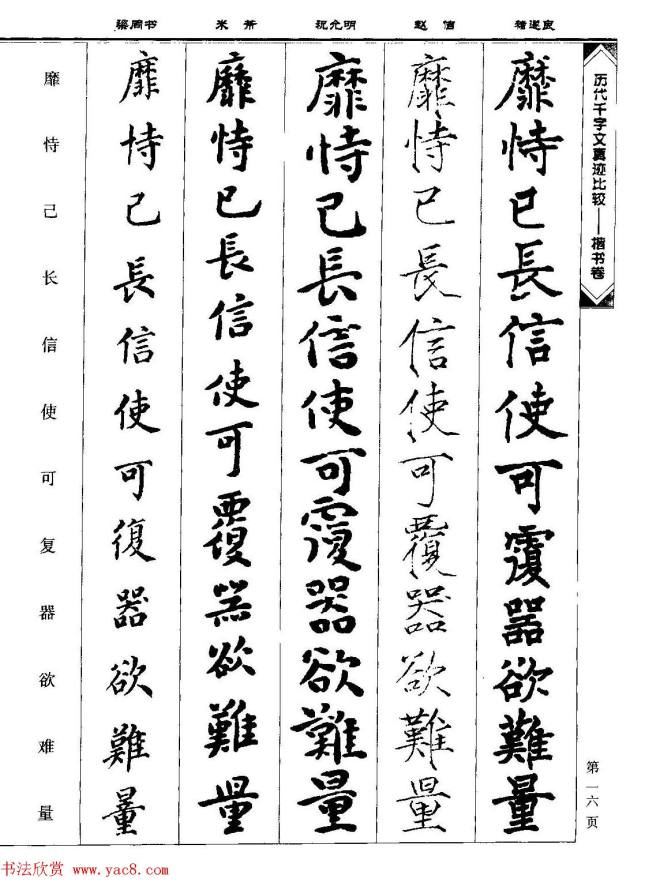 历代千字文真迹比较——楷书卷
第一六页
褚遂良
靡恃已長信使可覆器欲難量
赵佶
靡恃已長信使可覆器欲難量
祝允明
靡恃已長信使可覆器欲難量
米芾
靡恃已長信使可覆器欲難量
梁同书
靡恃已長信使可復器欲難量
靡恃己长信使可复器欲难量
书法欣赏 www.yac8.com